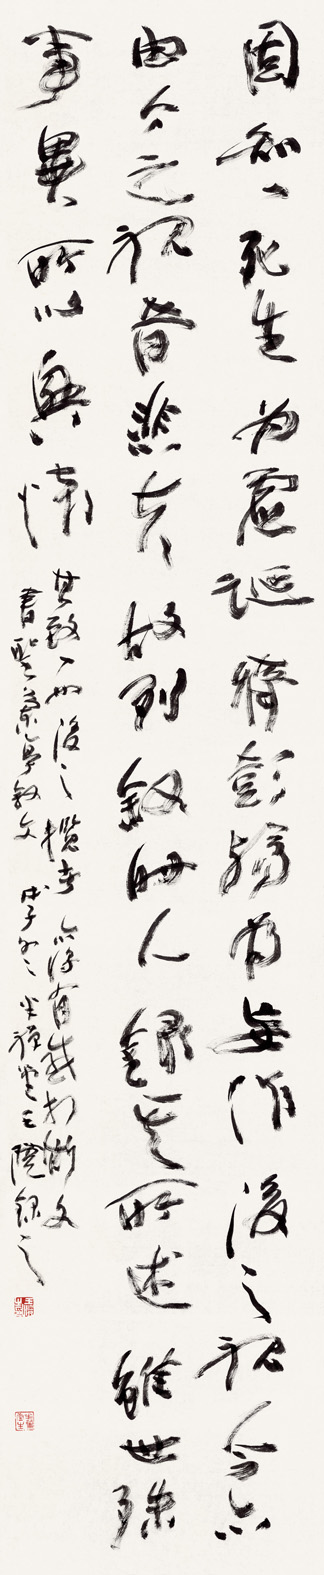 固知一死生為虛誕齊彭殤為妄作後之視今亦
由今之視昔悲夫故列敘時人錄其所述雖世殊
事異所以興懷
其致一也後之攬者亦將有感於斯文
書聖蘭亭敘文 戊子冬 錄之